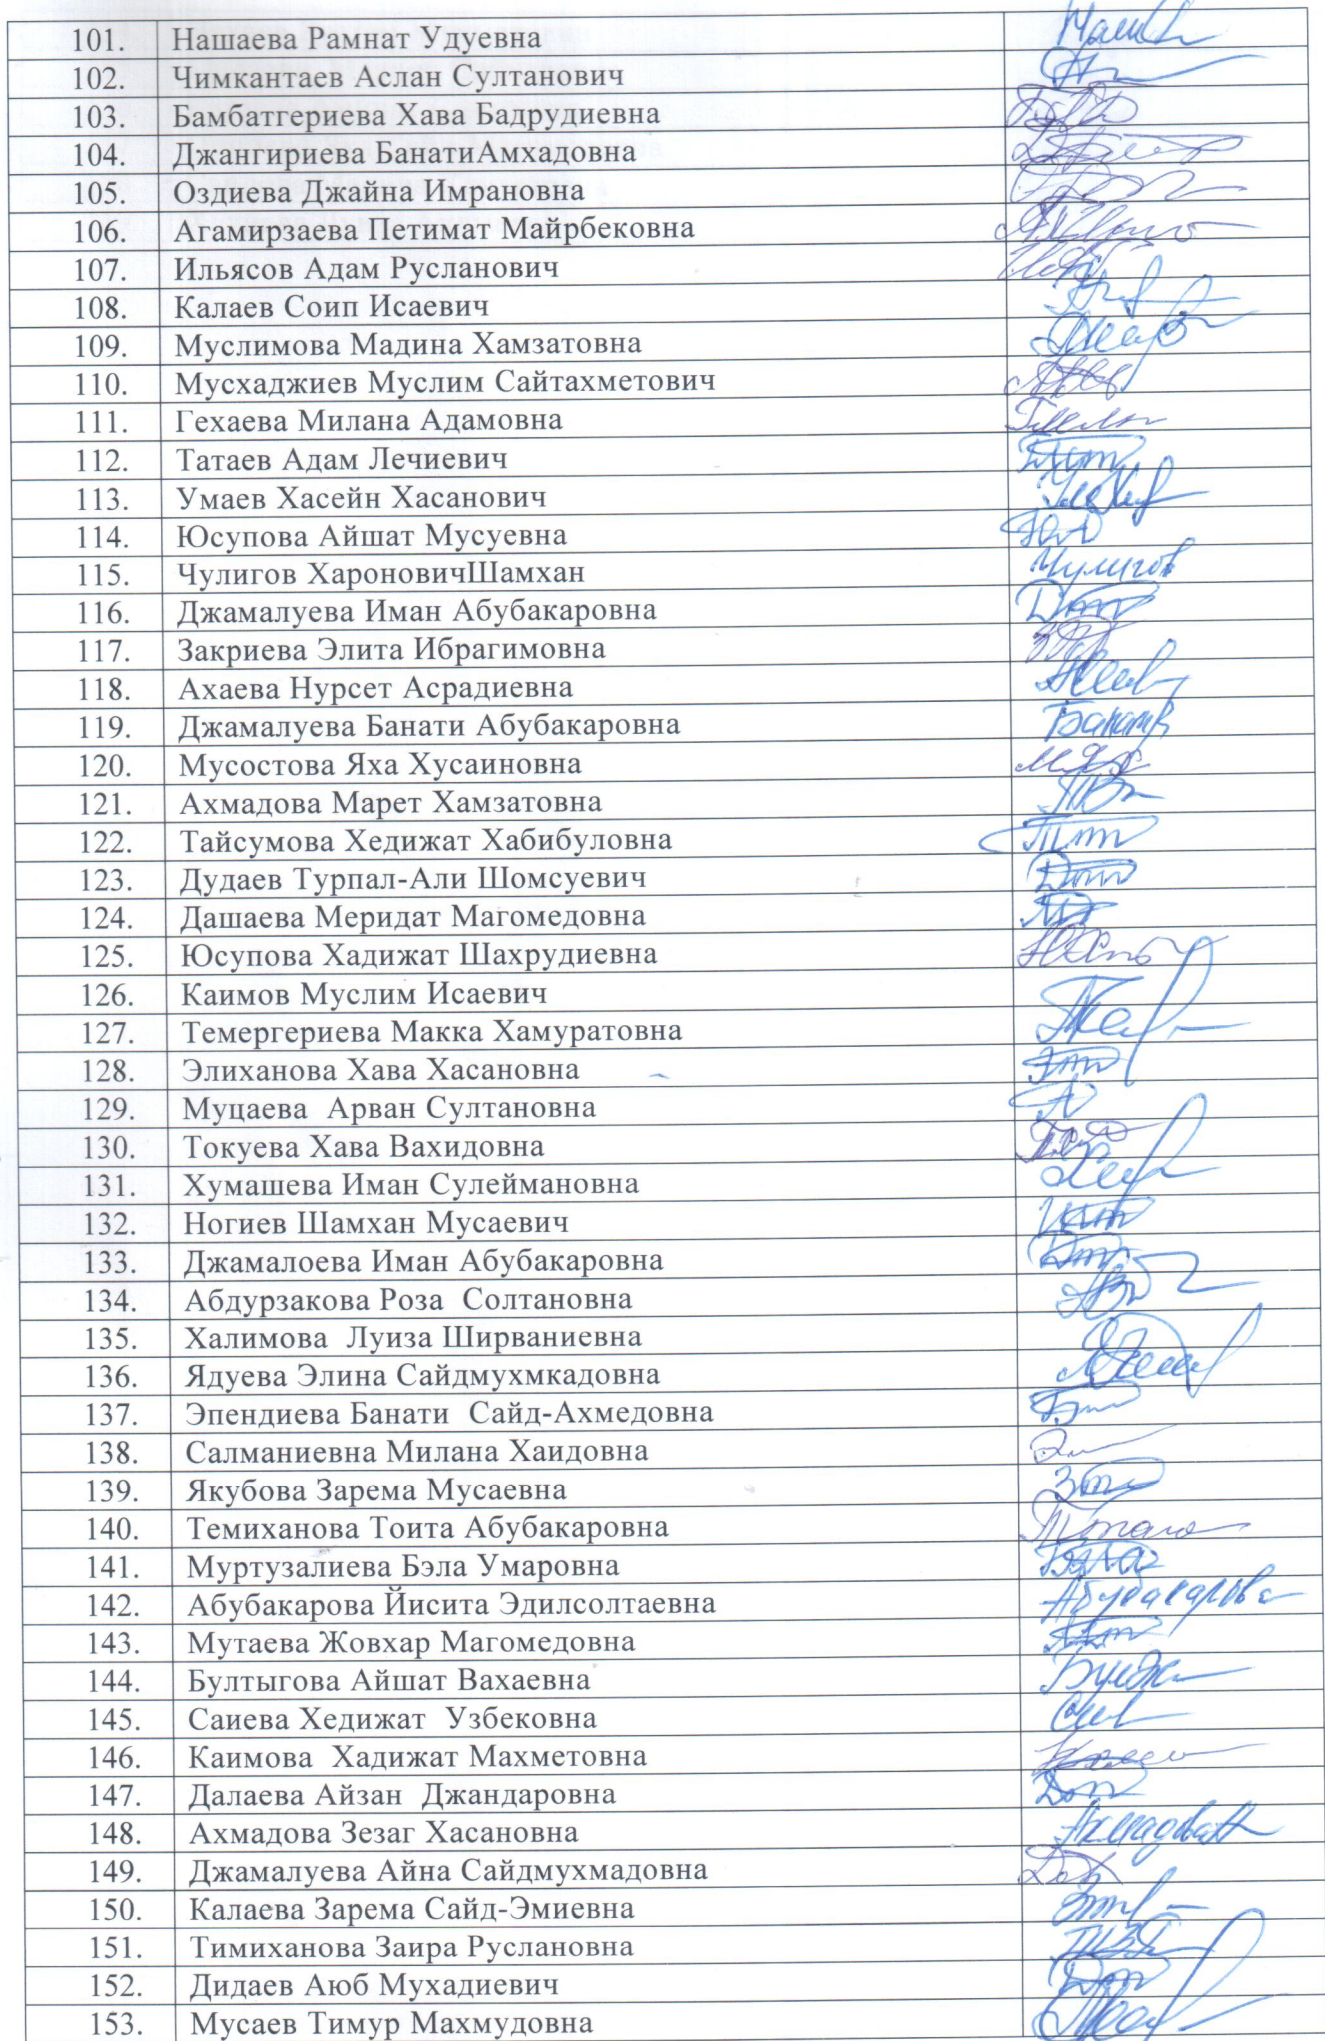 101. Нашаева Рамнат Удуевна
102. Чимкантаев Аслан Султанович
103. Бамбатгериева Хава Бадрудиевна
104. Джангириева БанатиАмхадовна
105. Оздиева Джайна Имрановна
106. Агамирзаева Петимат Майрбековна
107. Ильясов Адам Русланович
108. Калаев Соип Исаевич
109. Муслимова Мадина Хамзатовна
110. Мусхаджиев Муслим Сайтахметович
111. Гехаева Милана Адамовна
112. Татаев Адам Лечиевич
113. Умаев Хасейн Хасанович
114. Юсупова Айшат Мусуевна
115. Чулигов ХароновичШамхан Чулигов
116. Джамалуева Иман Абубакаровна
117. Закриева Элита Ибрагимовна
118. Ахаева Нурсет Асрадиевна
119. Джамалуева Банати Абубакаровна
120. Мусостова Яха Хусаиновна
121. Ахмадова Марет Хамзатовна
122. Тайсумова Хедижат Хабибуловна
123. Дудаев Турпал-Али Шомсуевич
124. Дашаева Меридат Магомедовна
125. Юсупова Хадижат Шахрудиевна
126. Каимов Муслим Исаевич
127. Темергериева Макка Хамуратовна
128. Элиханова Хава Хасановна
129. Муцаева Арван Султановна
130. Токуева Хава Вахидовна
131. Хумашева Иман Сулеймановна
132. Ногиев Шамхан Мусаевич
133. Джамалоева Иман Абубакаровна
134. Абдурзакова Роза Солтановна
135. Халимова Луиза Ширваниевна
136. Ядуева Элина Сайдмухмкадовна
137. Эпендиева Банати Сайд-Ахмедовна
138. Салманиевна Милана Хаидовна
139. Якубова Зарема Мусаевна
140. Темиханова Тоита Абубакаровна
141. Муртузалиева Бэла Умаровна
142. Абубакарова Йисита Эдилсолтаевна Абубакарова
143. Мутаева Жовхар Магомедовна
144. Бултыгова Айшат Вахаевна
145. Саиева Хедижат Узбековна
146. Каимова Хадижат Махметовна
147. Далаева Айзан Джандаровна
148. Ахмадова Зезаг Хасановна
149. Джамалуева Айна Сайдмухмадовна
150. Калаева Зарема Сайд-Эмиевна
151. Тимиханова Заира Руслановна
152. Дидаев Аюб Мухадиевич
153. Мусаев Тимур Махмудовна